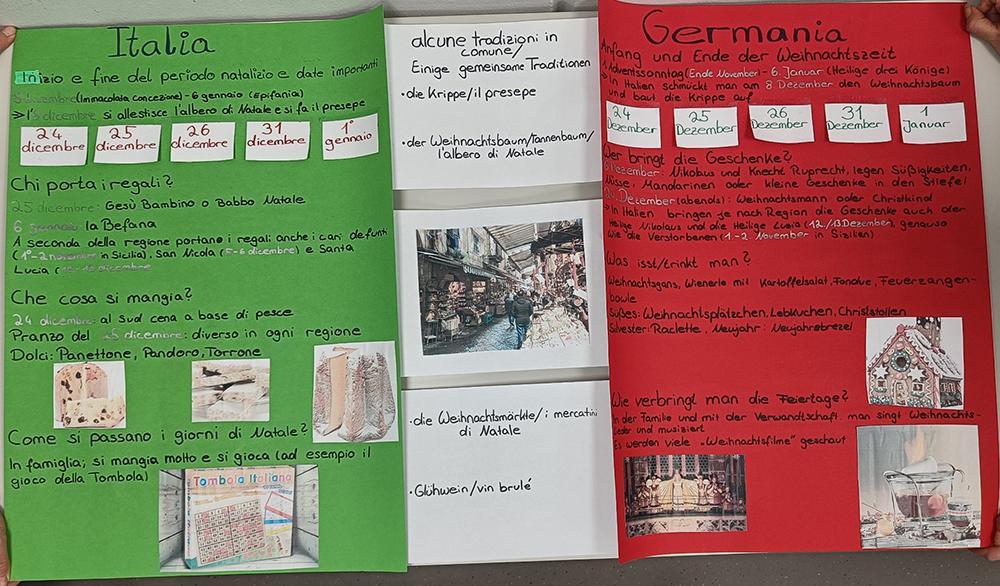 Italia
Inizio e fine del periodo natalizio e date importanti
8 dicembre (Immacolata concezione) - 6 gennaio (Epifania)
→ l'8 dicembre si allestisce l'albero di Natale e si fa il presepe
24 dicembre
25 dicembre
26 dicembre
31 dicembre
1° gennaio
Chi porta i regali?
25 dicembre: Gesù Bambino o Babbo Natale
6 gennaio la Befana
A seconda della regione portano i regali anche i cari defunti
(1°-2 novembre in Sicilia), San Nicola (5-6 dicembre) e Santa
Lucia ( dicembre
Che cosa si mangia?
24 dicembre: al sud cena a base di pesce
Pranzo del 25 dicembre: diverso in ogni regione
Dolci: Panettone, Pandoro, Torrone
Come si passano i giorni di Natale?
In famiglia; si mangia molto e si gioca (ad esempio il
gioco della Tombola)
Tombola Italiana
alcune tradizioni in
comune/
Einige gemeinsame Traditionen
• die Krippe/il presepe
• der Weihnachtsbaum/Tannenbaum/
l'albero di Natale
• die Weihnachtsmärkte/i mercatini
di Natale
• Glühwein/vin brulé
Germania
Anfang und Ende der Weihnachtszeit
1. Adventssonntag (Ende November) - 6. Januar (Heilige drei Könige)
→ In Italien schmückt man am 8 Dezember den Weihnachtsbaum
und baut die Krippe auf
24 Dezember
25 Dezember
26 Dezember
31 Dezember
1 Januar
Wer bringt die Geschenke?
6 Dezember: Nikolaus und Knecht Ruprecht, legen Süßigkeiten,
Nüsse, Mandarinen oder kleine Geschenke in den Stiefel
24. Dezember (abends): Weihnachtsmann oder Christkind
→ In Italien bringen je nach Region die Geschenke auch der
Heilige Nikolaus und die Heilige Lucia (12./13. Dezember), genauso
wie die Verstorbenen (1-2. November in Sizilien)
Was isst/trinkt man?
Weihnachtsgans, Wienerle mit Kartoffelsalat, Fondue, Feuerzangen-
bowle
Süßes: Weihnachtsplätzchen, Lebkuchen, Christstollen
Silvester: Raclette, Neujahr: Neujahrsbrezel
Wie verbringt man die Feiertage?
In der Familie und mit der Verwandtschaft. man singt Weihnachts-
lieder und musiziert
Es werden viele „Weihnachtsfilme" geschaut